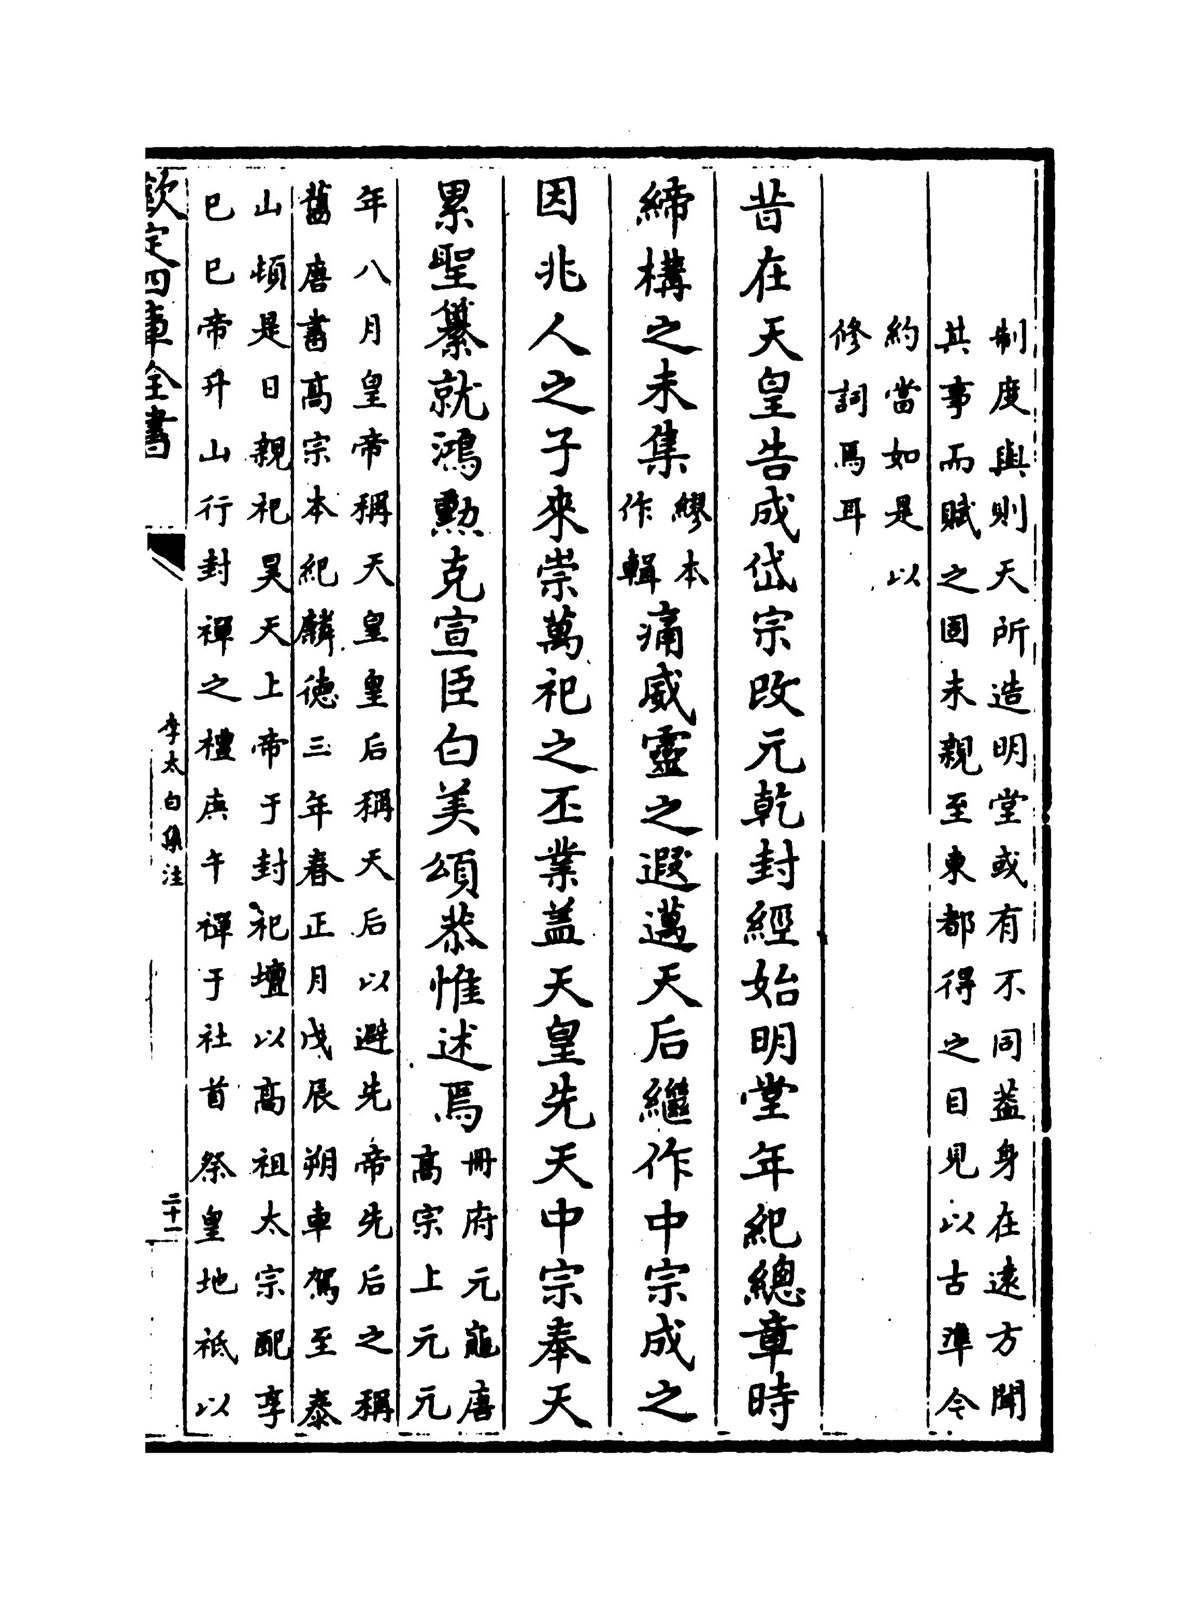 制度與則天所造明堂或有不同葢身在逺方聞
其事而賦之固未親至東都得之目見以古凖今
約當如是以
修詞焉耳
昔在天皇告成岱宗改元乾封經始明堂年紀總章時
締構之未集
繆本
作輯
痛威靈之遐邁天后繼作中宗成之
因兆人之子來崇萬祀之丕業盖天皇先天中宗奉天
累聖纂就鴻勲克宣臣白美頌恭惟述焉
冊府元龜唐
高宗上元元
年八月皇帝稱天皇皇后稱天后以避先帝先后之稱
舊唐書高宗本紀麟德三年春正月戊辰朔車駕至泰
山頓是日親祀昊天上帝于封祀壇以高祖太宗配享
巳巳帝升山行封禪之禮庚午禪于社首祭皇地祗以
欽定四庫全書
李太白集注
二十一